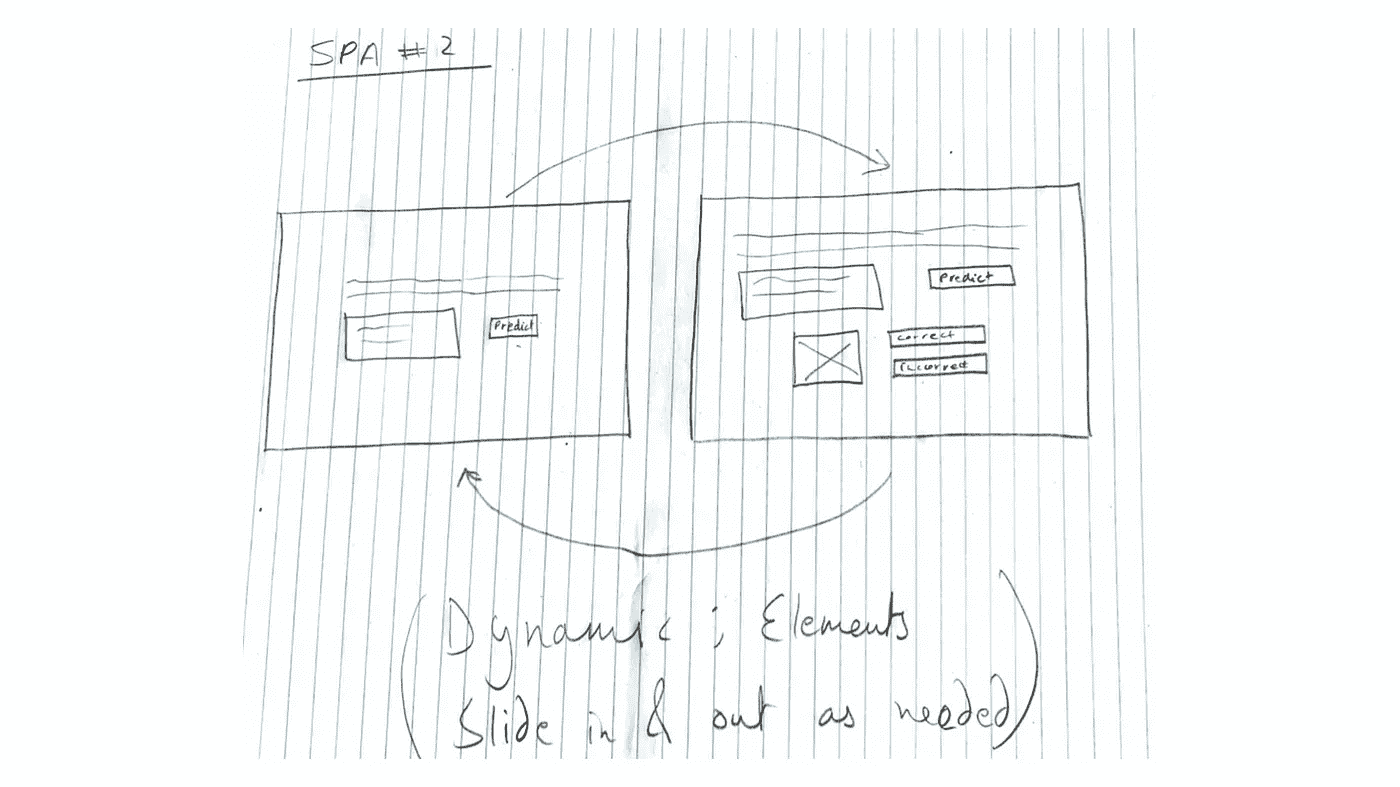 SPA # 2
Predict
Predict
correct
Incorrect
(Dynamic ; Elements
Slide in & out as needed)